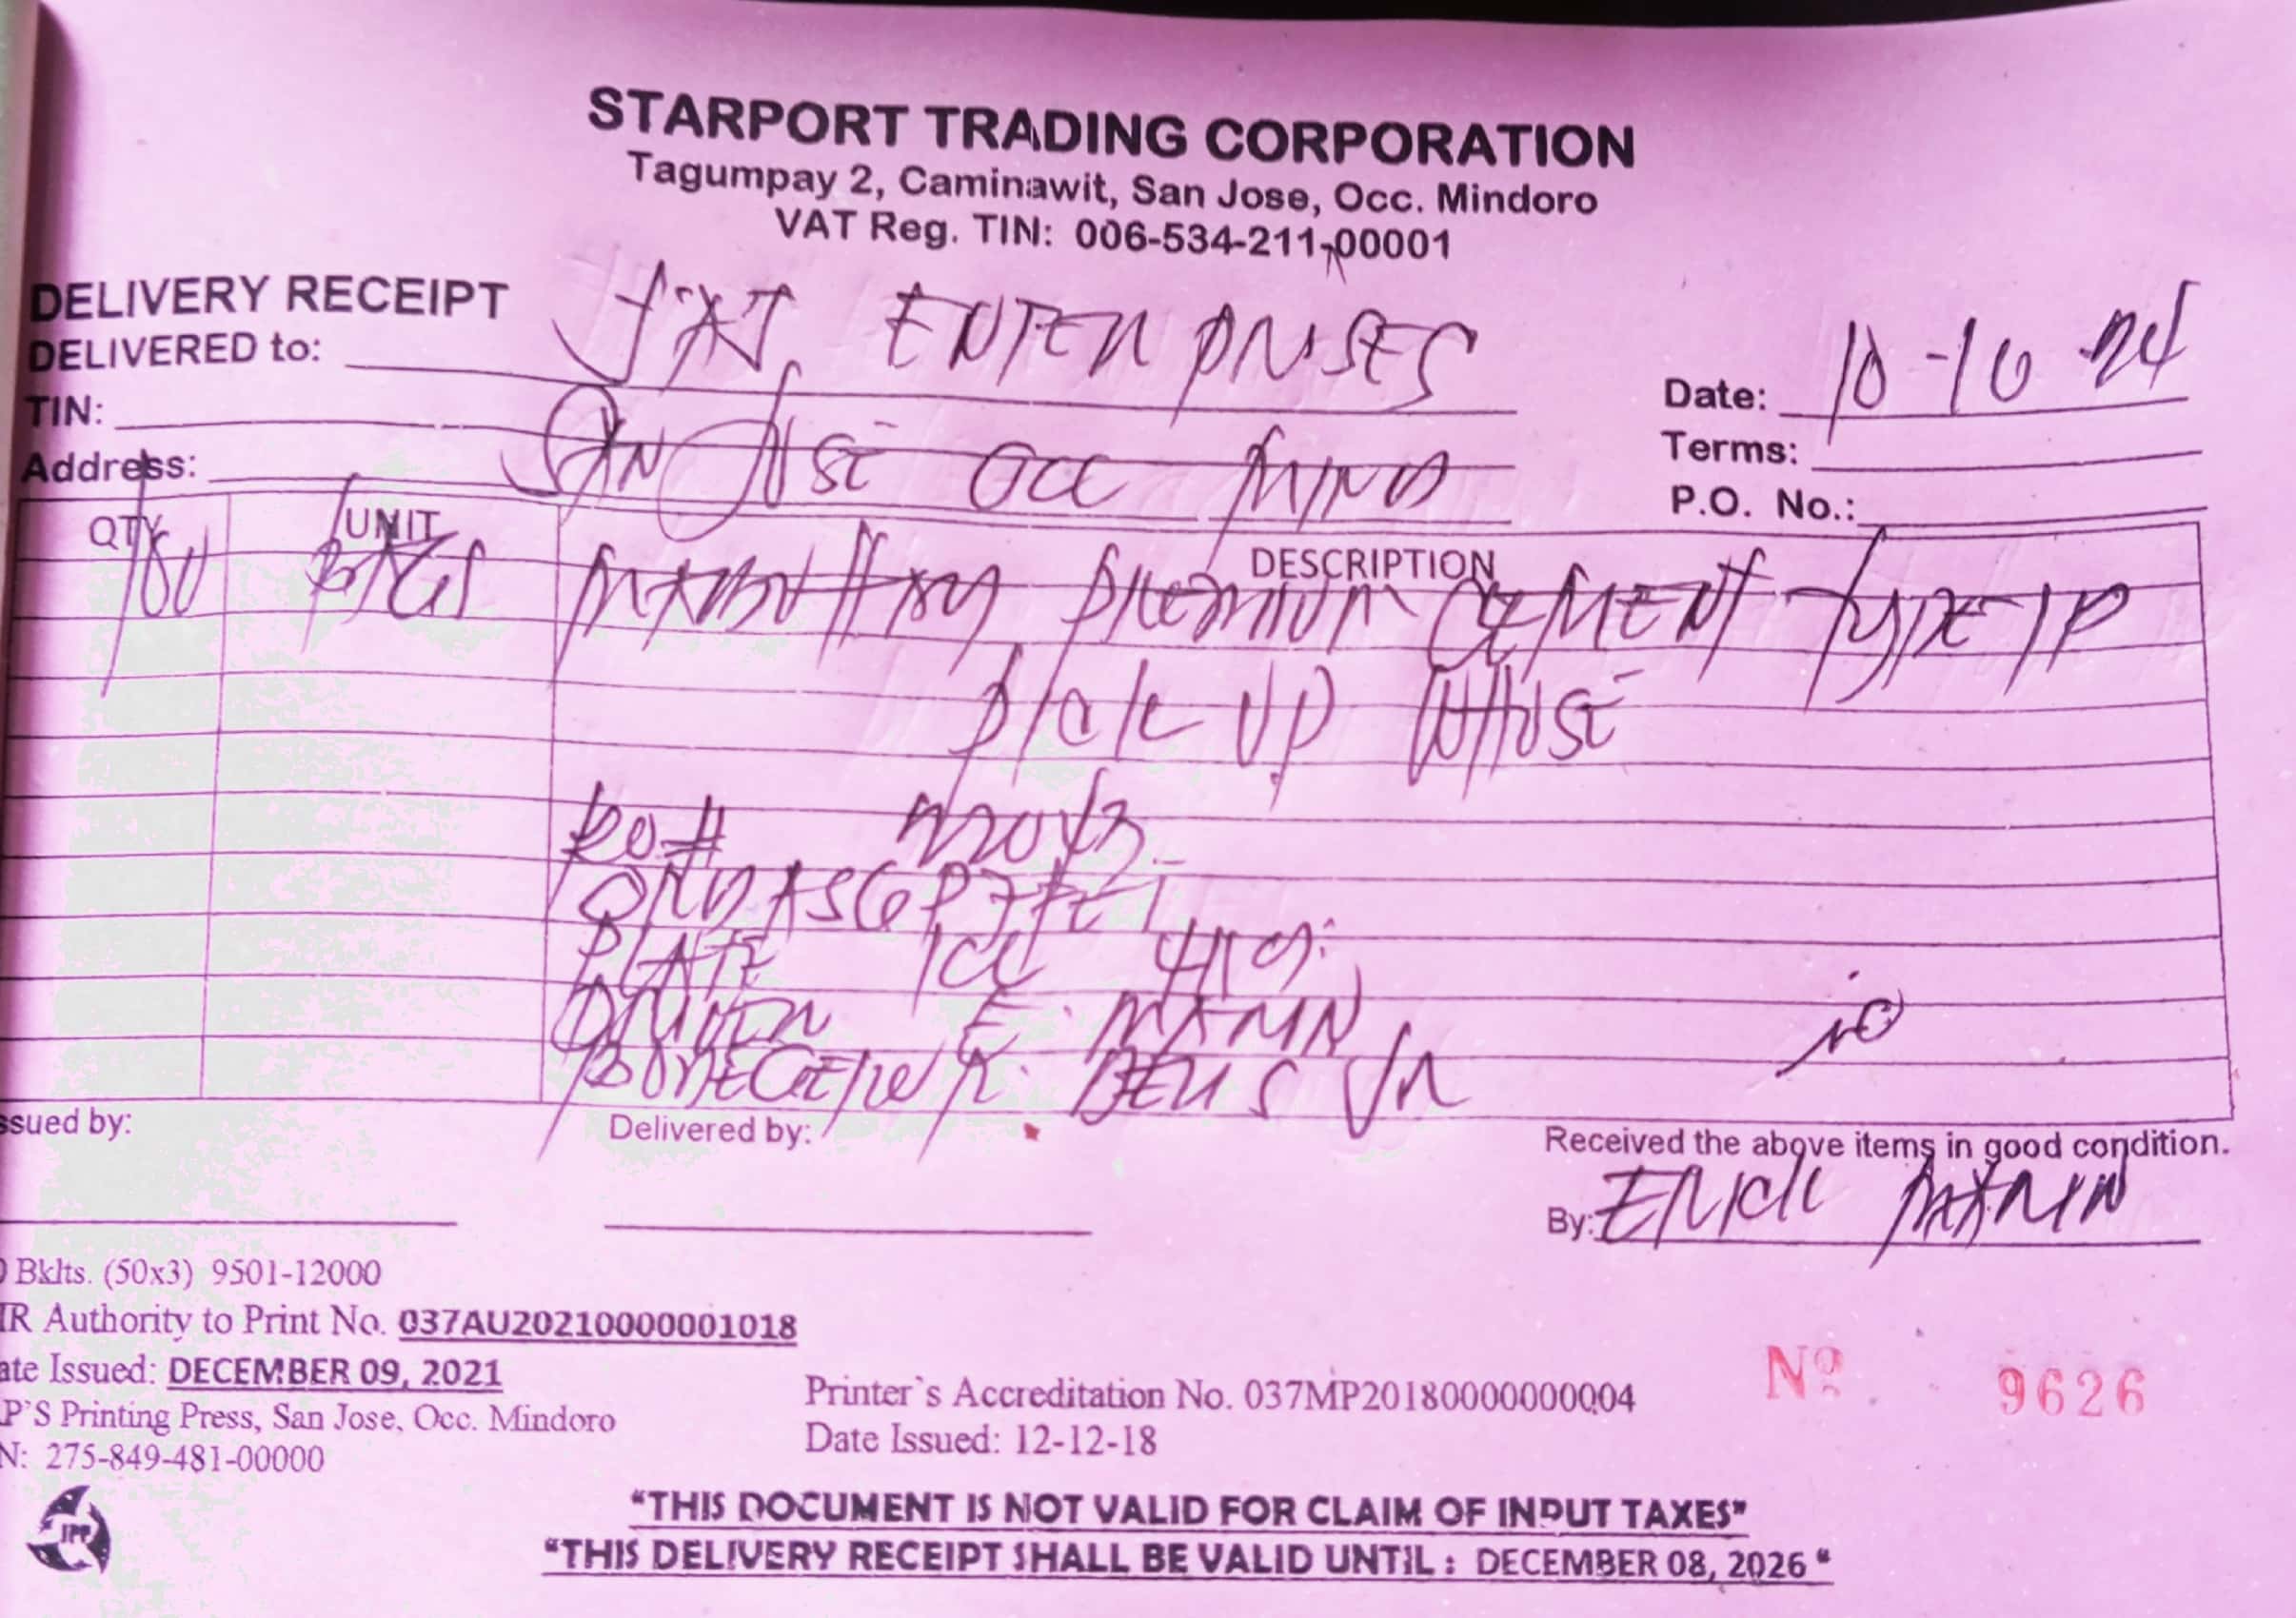 STARPORT TRADING CORPORATION
Tagumpay 2, Caminawit, San Jose, Occ. Mindoro
VAT Reg. TIN: 006-534-211-00001
DELIVERY RECEIPT
DELIVERED to: ENTERPRISES
Date: 10-10-24
TIN:
Terms:
Address: SAN JOSE OCC MINDO
P.O. No.:
QTY UNIT DESCRIPTION
BAGS PREMIUM CEMENT TYPE 1P
PICK UP WHSE
PLATE
DRIVER E. MARIN
JR
ssued by:
Delivered by:
Received the above items in good condition.
By: ERICK MARIN
Bklts. (50x3) 9501-12000
IR Authority to Print No. 037AU20210000001018
ate Issued: DECEMBER 09, 2021
P'S Printing Press, San Jose, Occ. Mindoro
N: 275-849-481-00000
Printer`s Accreditation No. 037MP20180000000004
Date Issued: 12-12-18
Nº 9626
IPP
"THIS DOCUMENT IS NOT VALID FOR CLAIM OF INPUT TAXES"
"THIS DELIVERY RECEIPT SHALL BE VALID UNTIL : DECEMBER 08, 2026 "